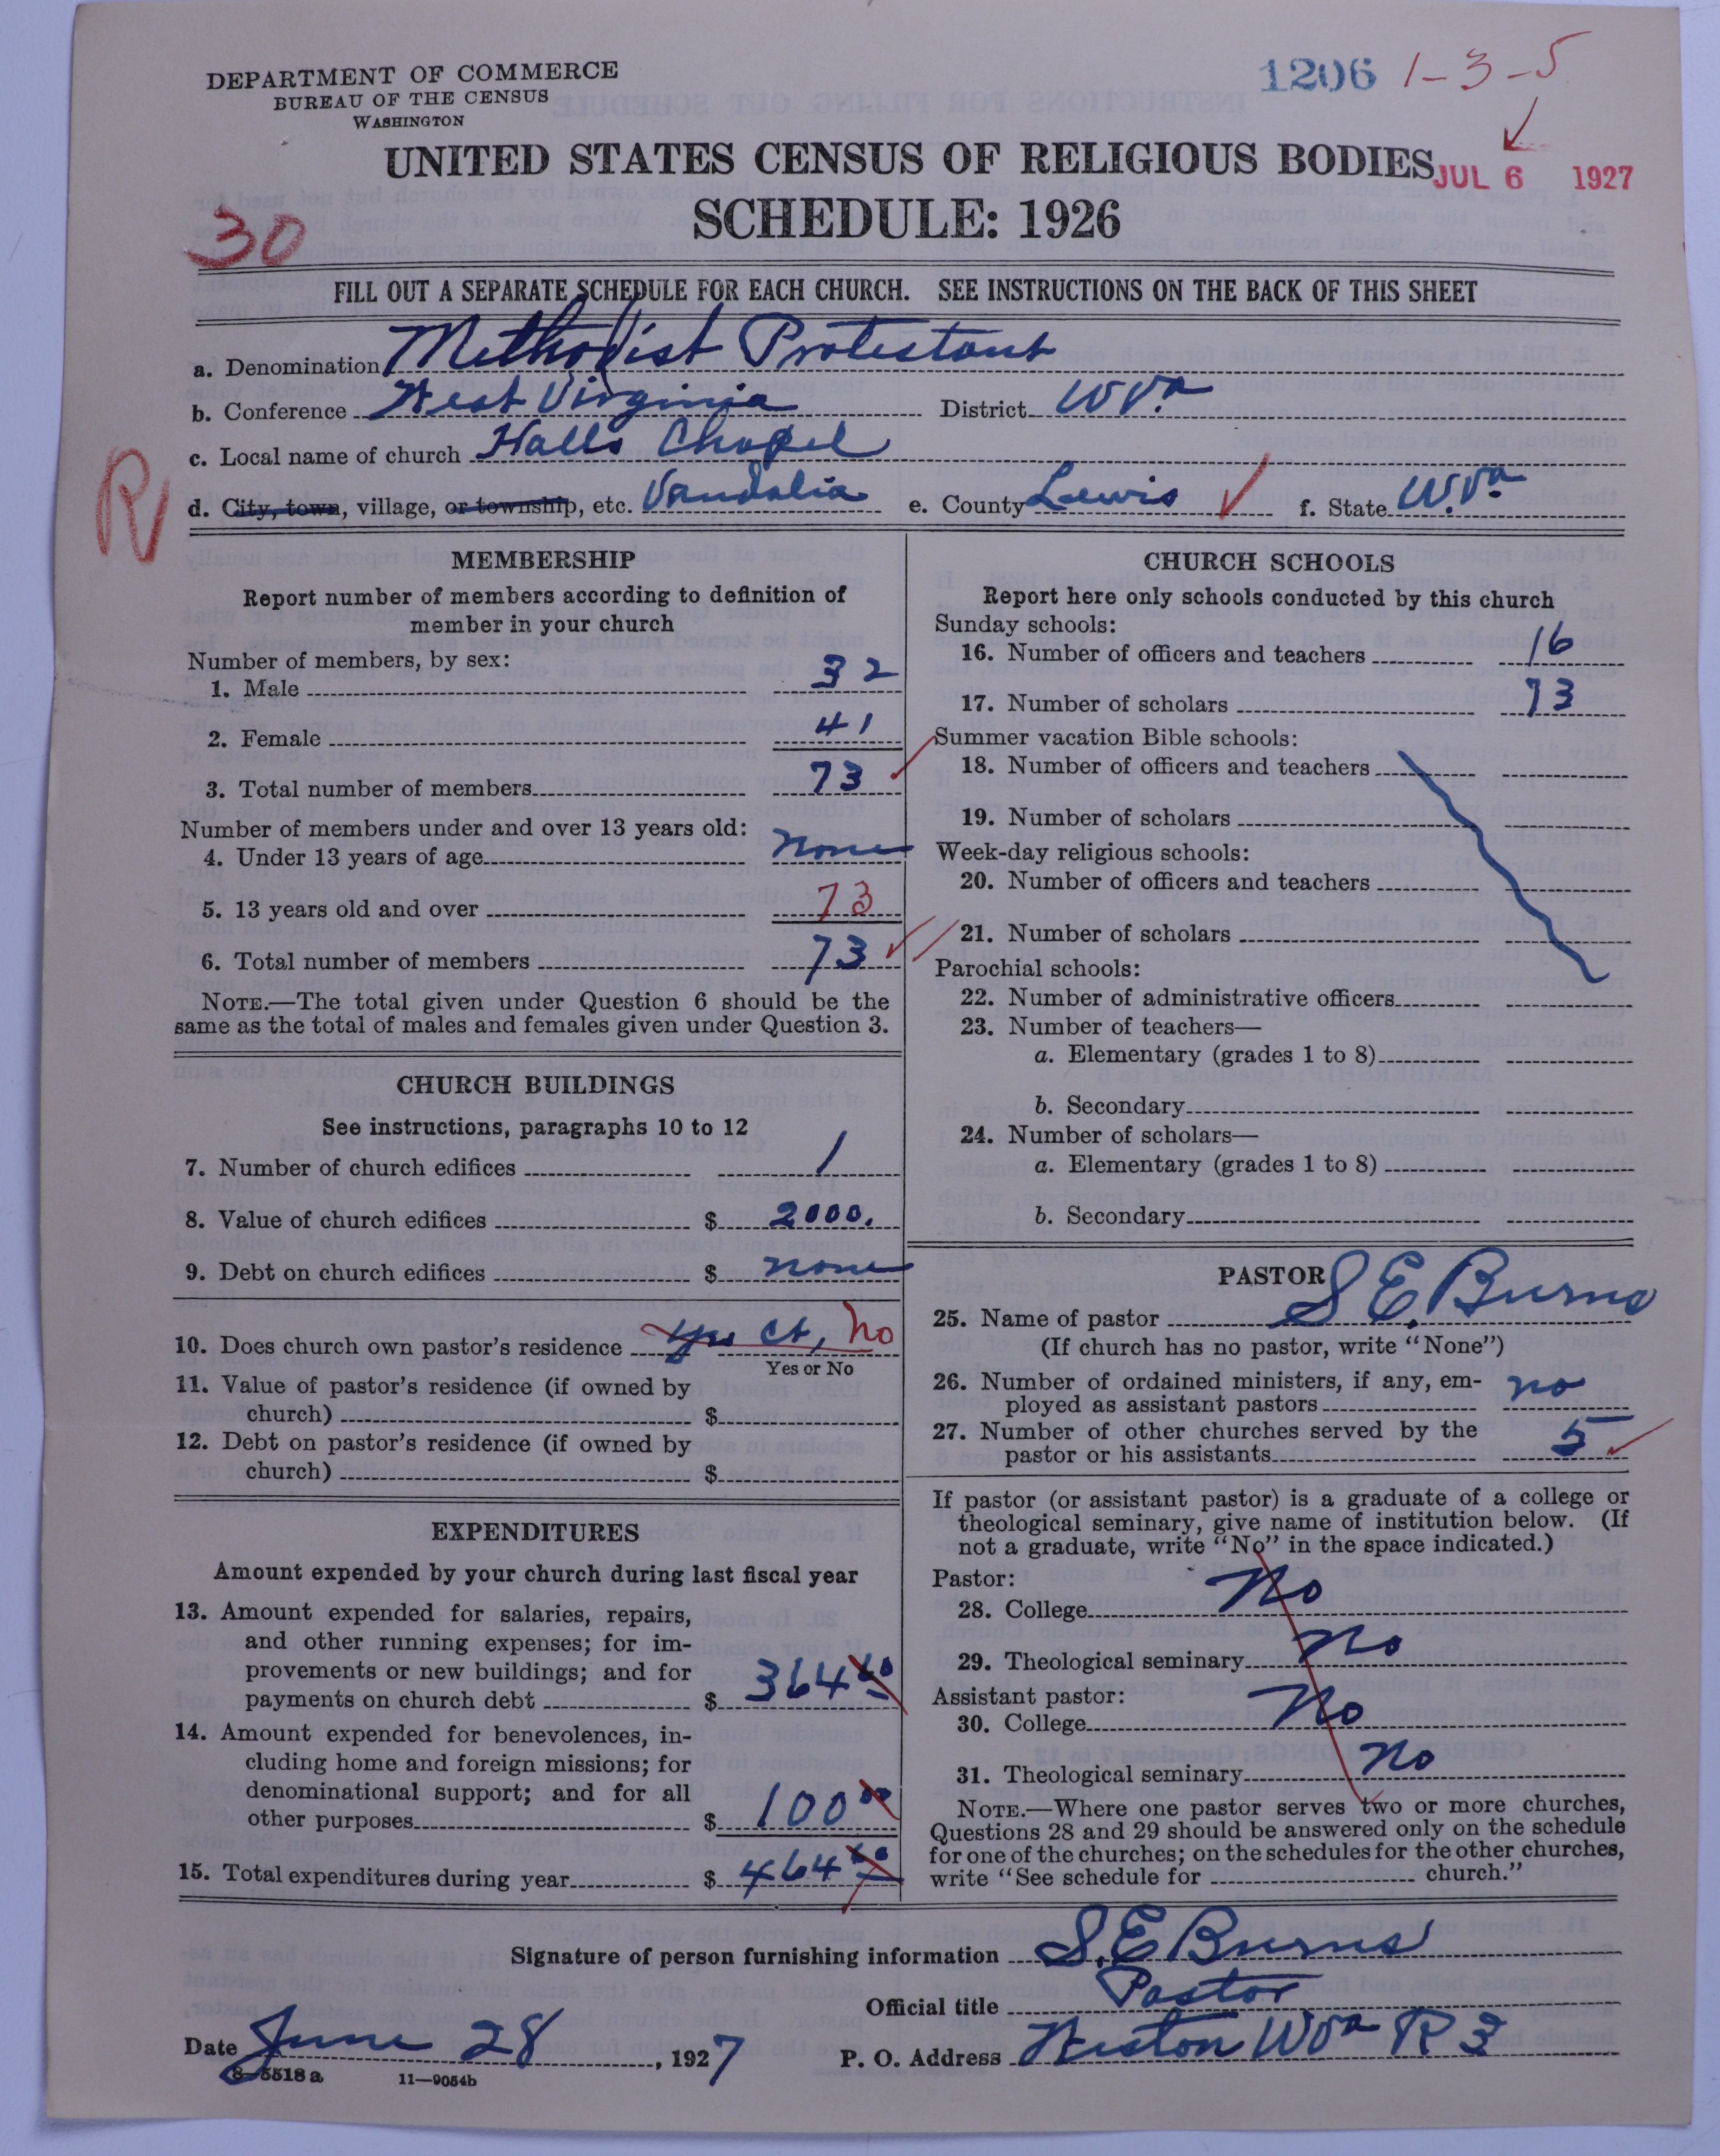 DEPARTMENT OF COMMERCE
BUREAU OF THE CENSUS
WASHINGTON
1206 1-3-5
UNITED STATES CENSUS OF RELIGIOUS BODIES
JUL 6 1927
SCHEDULE: 1926
30
FILL OUT A SEPARATE SCHEDULE FOR EACH CHURCH. SEE INSTRUCTIONS ON THE BACK OF THIS SHEET
a. Denomination Methodist Protestant
b. Conference West Virginia District W Va.
c. Local name of church Halls Chapel
R
d. City, town, village, or township, etc. Vandalia e. County Lewis f. State W. Va
MEMBERSHIP
Report number of members according to definition of
member in your church
Number of members, by sex:
1. Male 32
2. Female 41
3. Total number of members 73
Number of members under and over 13 years old:
4. Under 13 years of age none
5. 13 years old and over 73
6. Total number of members 73
NOTE.—The total given under Question 6 should be the
same as the total of males and females given under Question 3.
CHURCH BUILDINGS
See instructions, paragraphs 10 to 12
7. Number of church edifices 1
8. Value of church edifices $ 2000.
9. Debt on church edifices $ none
10. Does church own pastor's residence yes ct, no
Yes or No
11. Value of pastor's residence (if owned by
church) $
12. Debt on pastor's residence (if owned by
church) $
EXPENDITURES
Amount expended by your church during last fiscal year
13. Amount expended for salaries, repairs,
and other running expenses; for im-
provements or new buildings; and for
payments on church debt $ 364
14. Amount expended for benevolences, in-
cluding home and foreign missions; for
denominational support; and for all
other purposes $ 100 00
15. Total expenditures during year $ 464
CHURCH SCHOOLS
Report here only schools conducted by this church
Sunday schools:
16. Number of officers and teachers 16
17. Number of scholars 73
Summer vacation Bible schools:
18. Number of officers and teachers
19. Number of scholars
Week-day religious schools:
20. Number of officers and teachers
21. Number of scholars
Parochial schools:
22. Number of administrative officers
23. Number of teachers—
a. Elementary (grades 1 to 8)
b. Secondary
24. Number of scholars—
a. Elementary (grades 1 to 8)
b. Secondary
PASTOR
25. Name of pastor S. E. Burns
(If church has no pastor, write "None")
26. Number of ordained ministers, if any, em-
ployed as assistant pastors no
27. Number of other churches served by the
pastor or his assistants 5
If pastor (or assistant pastor) is a graduate of a college or
theological seminary, give name of institution below. (If
not a graduate, write "No" in the space indicated.)
Pastor:
28. College No
29. Theological seminary No
Assistant pastor:
30. College No
31. Theological seminary No
NOTE.—Where one pastor serves two or more churches,
Questions 28 and 29 should be answered only on the schedule
for one of the churches; on the schedules for the other churches,
write "See schedule for church."
Signature of person furnishing information S. E. Burns
Official title Pastor
Date June 28, 1927 P. O. Address Weston W Va R 3
8-5518 a 11-9054b